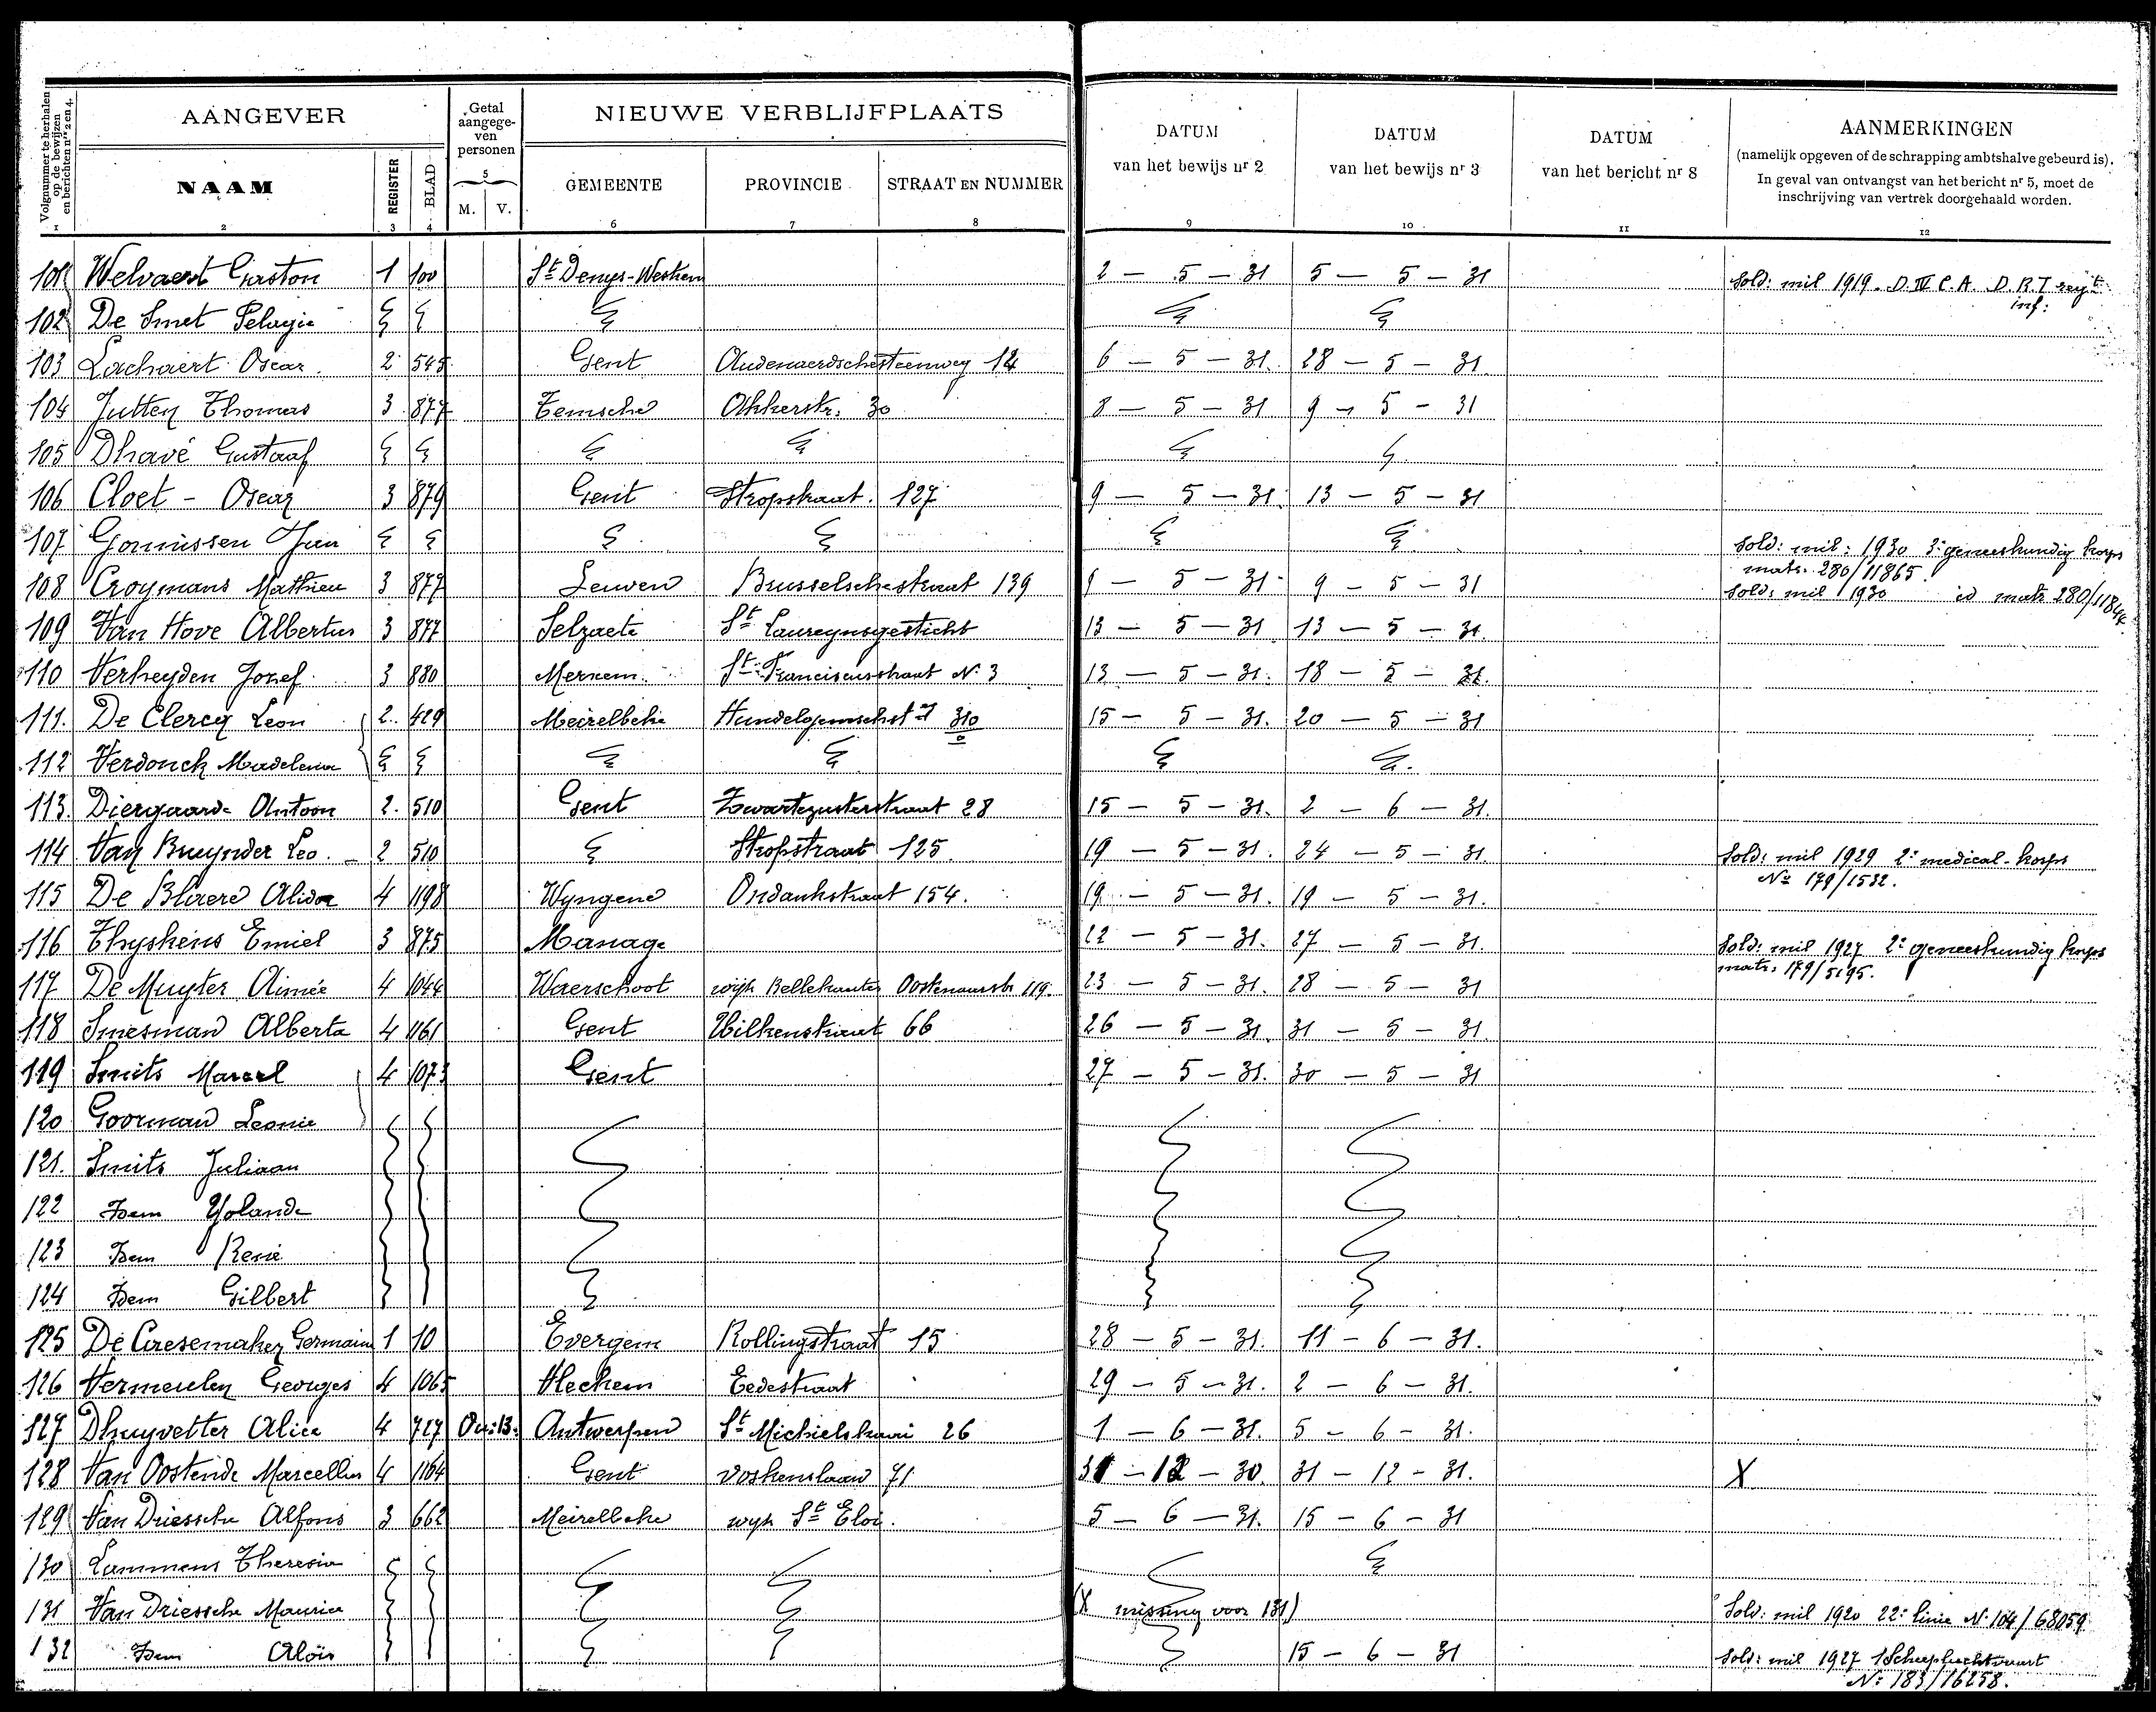 Volgnummer te herhalen op de bewijzen en berichten nrs 2 en 4.
AANGEVER
Getal aangegeven personen
NIEUWE VERBLIJFPLAATS
DATUM van het bewijs nr 2
DATUM van het bewijs nr 3
DATUM van het bericht nr 8
AANMERKINGEN
(namelijk opgeven of de schrapping ambtshalve gebeurd is).
In geval van ontvangst van het bericht nr 5, moet de inschrijving van vertrek doorgehaald worden.
NAAM REGISTER BLAD M. V. GEMEENTE PROVINCIE STRAAT EN NUMMER
1 2 3 4 5 6 7 8 9 10 11 12
101 Welvaert Gaston 1 100 St Denys-Westrem 2 - 5 - 31 5 - 5 - 31 Sold: mil 1919. D. IV C.A. D.R.I regt inf:
102 De Smet Pelagie
103 Lachaert Oscar 2 545 Gent Oudenaerdschesteenweg 12 6 - 5 - 31. 28 - 5 - 31.
104 Jutten Thomas 3 877 Temsche Akkerstr. 30 8 - 5 - 31 9 - 5 - 31
105 Dhavé Gustaaf
106 Cloet - Oscar 3 879 Gent Stropstraat. 127 9 - 5 - 31. 13 - 5 - 31
107 Gonnissen Jan Sold: mil: 1930 3e geneeskundig korps matr. 280/11865.
108 Croymans Mathieu 3 877 Leuven Brusselschestraat 139 9 - 5 - 31 9 - 5 - 31 Sold: mil 1930 id matr
109 Van Hove Albertus 3 877 Selzaete St Laureynsgesticht 13 - 5 - 31 13 - 5 - 31.
110 Verheyden Jozef 3 880 Merxem St Franciscusstraat N. 3 13 - 5 - 31. 18 - 5 - 31.
111. De Clercq Leon 2. 429 Meirelbeke 310 15 - 5 - 31. 20 - 5 - 31
112 Verdonck Madelena
113. Diergaarde Antoon 2. 510 Gent Zwartezusterstraat 28 15 - 5 - 31. 2 - 6 - 31.
114 Van Bruynder Leo. 2 510 Stropstraat 125 19 - 5 - 31. 24 - 5 - 31 Sold: mil 1929 2e medical-korps No 179/1532.
115 De Blaere Alida 4 1198 Wyngene Ondankstraat 154. 19 - 5 - 31. 19 - 5 - 31.
116 Thyskens Emiel 3 875 Manage 22 - 5 - 31. 27 - 5 - 31. Sold: mil 1927 2e geneeskundig korps matr: 179/5195.
117 De Muyter Aimée 4 1044 Waerschoot wijk Bellekouter 119. 23 - 5 - 31. 28 - 5 - 31
118 Smesman Alberta 4 1161 Gent 66 26 - 5 - 31. 31 - 5 - 31.
119 Smits Marcel 4 1073 Gent 27 - 5 - 31. 30 - 5 - 31
120 Goorman Leonie
121. Smits Juliaan
122 Idem Yolande
123 Idem René
124 Idem Gilbert
125 De Caesemaker Germaine 1 10 Evergem 15 28 - 5 - 31. 11 - 6 - 31.
126 Vermeulen Georges 4 1065 Vlekkem Eedestraat 29 - 5 - 31. 2 - 6 - 31.
127 Dhuyvetter Alice 4 727 Antwerpen St Michielskaai 26 1 - 6 - 31. 5 - 6 - 31.
128 Van Oostende Marcellus 4 1164 Gent Voskenslaan 71 31 - 12 - 30. 31 - 12 - 31. X
129 Van Driessche Alfons 3 662 Meirelbeke wijk St Eloi. 5 - 6 - 31. 15 - 6 - 31
130 Lammens Theresia
131 Van Driessche Maurice (X missing voor 131) Sold: mil 1920 22e linie N. 104/68059
132 Idem Aloïs 15 - 6 - 31 Sold: mil 1927 N: 183/16258.